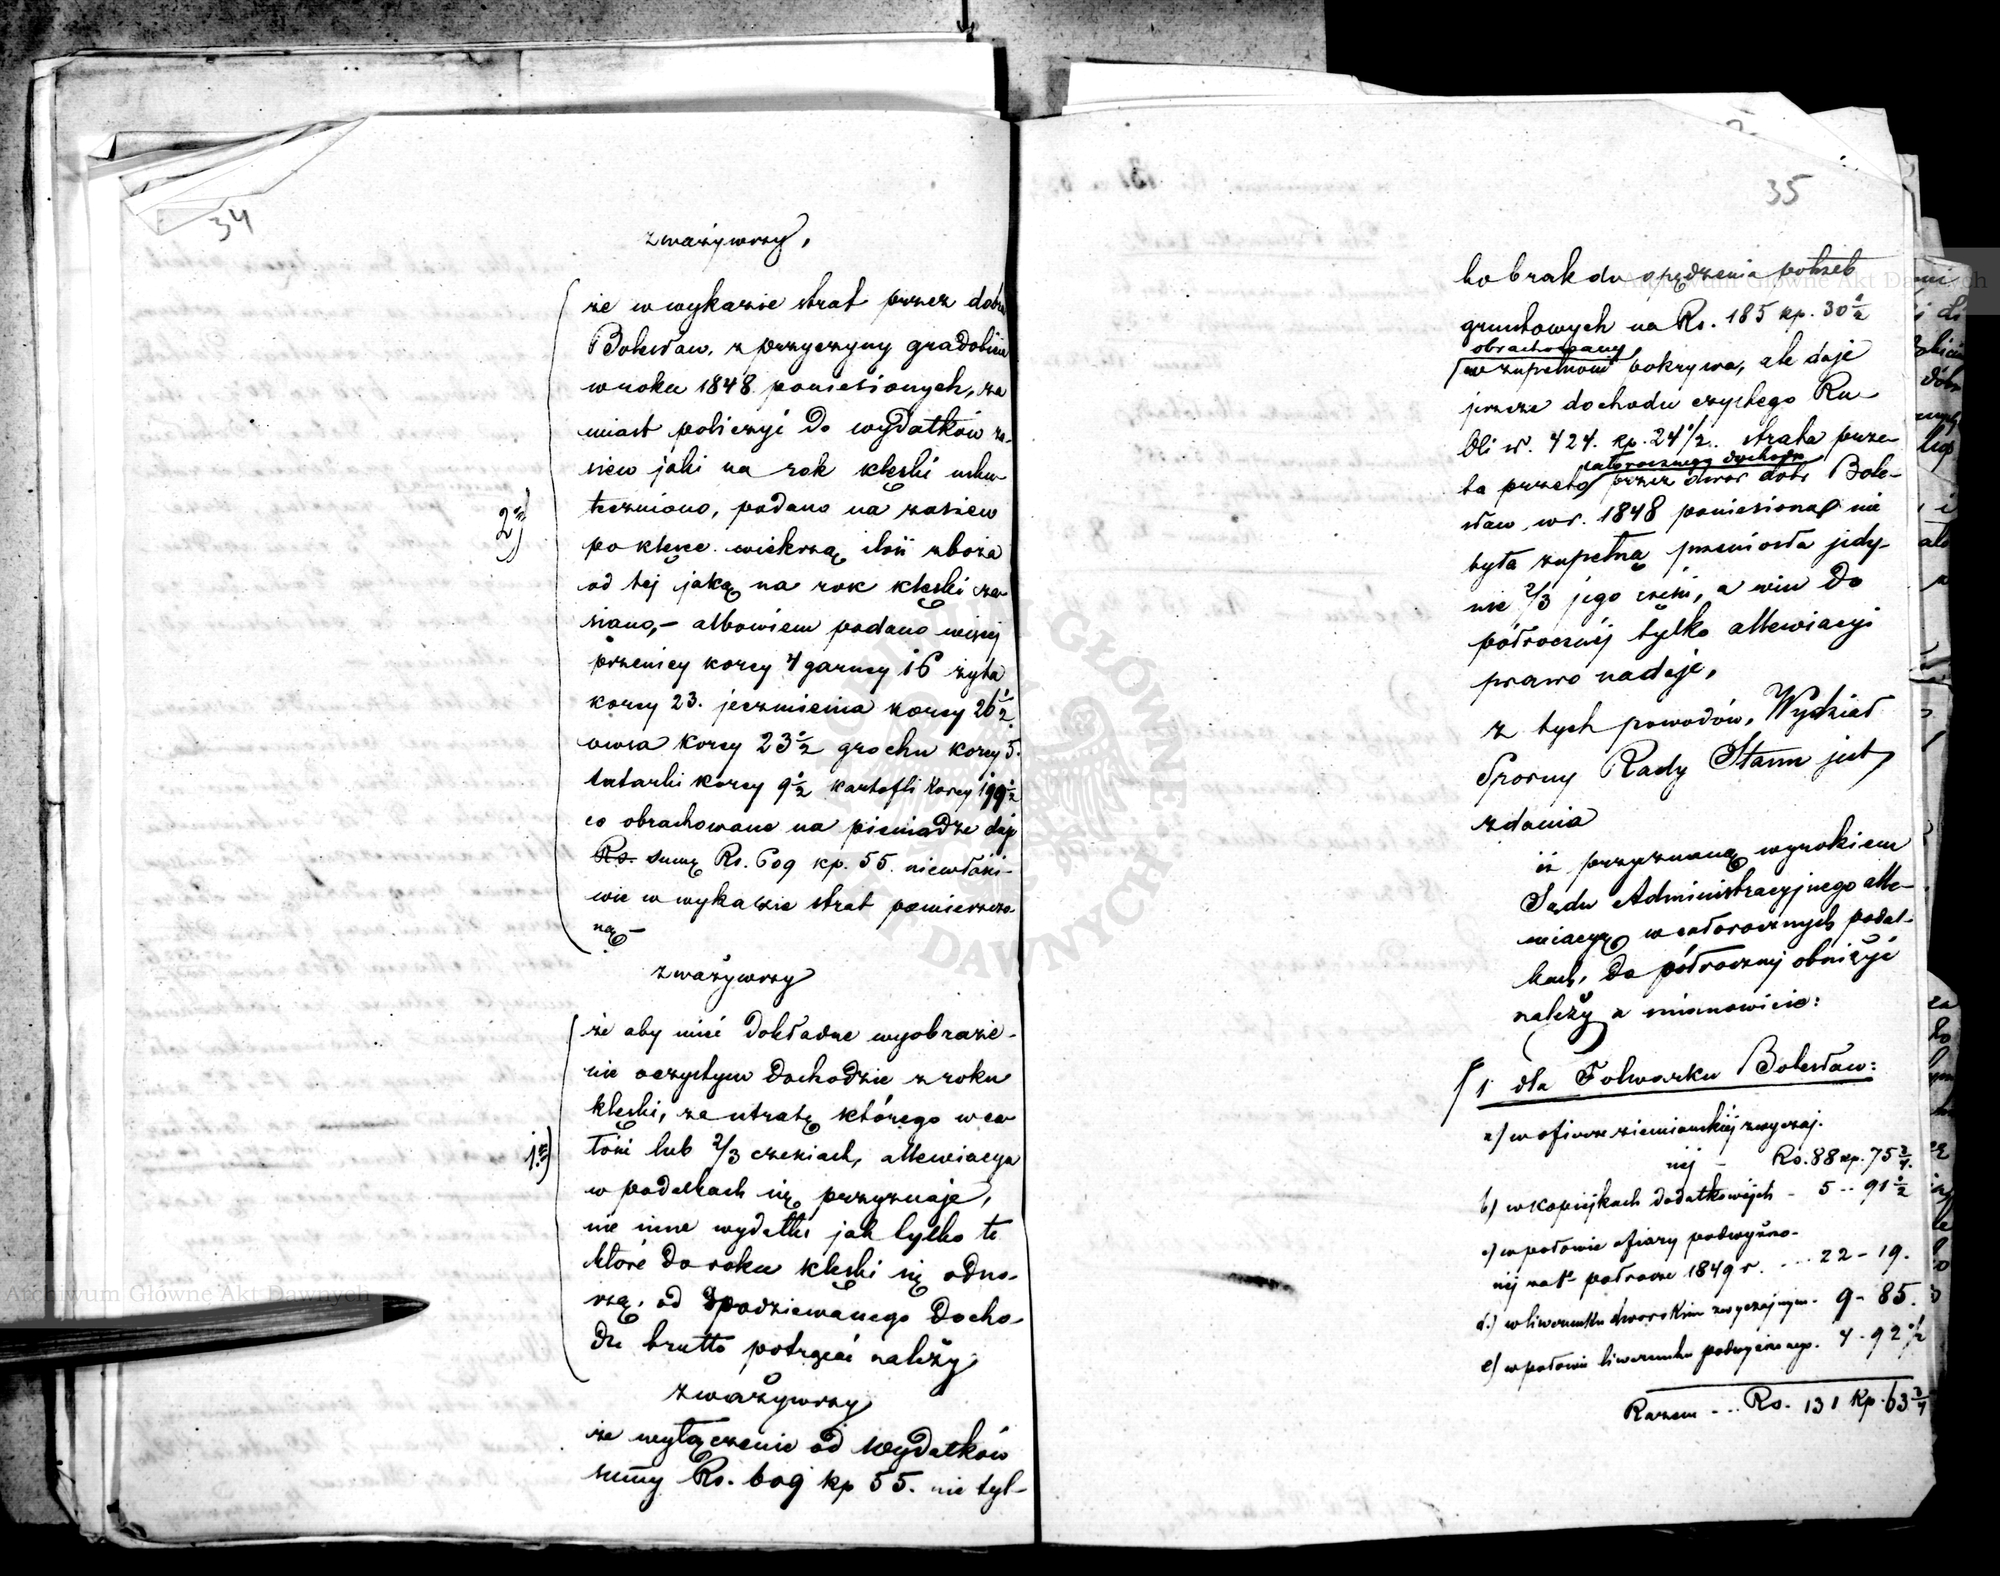 34
zważywszy,
że w wykazie strat przez dobra
Bolesław, z przyczyny gradobicia
w roku 1848 poniesionych, za
miast policzyć do wydatków za-
siew jaki na rok klęski usku-
teczniono, podano na zasiew
2) po klęsce większą ilość zboża
od tej jaką na rok klęski za-
siano, – albowiem podano więcej
pszenicy korcy 4 garncy 16 żyta
korcy 23. jęczmienia korcy 26 1/2
owsa korcy 23 1/2 grochu korcy 5.
tatarki korcy 9 1/2 kartofli korcy 199 1/2
co obrachowane na pieniądze daje
Rs. summę Rs. 609 kp. 55. niewłaści-
wie w wykazie strat pomieszczo-
ną –
zważywszy
że aby mieć dokładne wyobraże-
nie o czystym dochodzie z roku
klęski, za utratę którego w ca-
1) łości lub 2/3 częściach, allewiacya
w podatkach się przyznaje,
nie inne wydatki jak tylko te
które do roku klęski się odno-
szą, od spodziewanego docho-
du brutto potrącić należy;
zważywszy
że wyłączenie od wydatków
summy Rs. 609 kp 55. nie tyl-
35
ko brak do opędzenia potrzeb
gruntowych na Rs. 185 kp. 30 1/2
obrachowany
w zupełności pokrywa, ale daje
jeszcze dochodu czystego Ru-
bli sr. 424. kp. 24 1/2. strata prze-
całorocznego dochodu
ta przeto przez dwor dobr Bole-
sław w r. 1848 poniesiona nie
była zupełną przeniosła jedy-
nie 2/3 jego części, a więc do
półrocznej tylko allewiacyi
prawo nadaje,
z tych powodów, Wydział
Sporny Rady Stanu jest
zdania
iż przyznaną wyrokiem
Sądu Administracyjnego alle-
wiacyą w całorocznych podat-
kach, do półrocznej obniżyć
należy a mianowicie:
1 dla Folwarku Bolesław:
a) w ofierze ziemiańskiej zwyczaj.
nej – Rs. 88 kp. 75 3/4.
b) w kopiejkach dodatkowych – 5 – 91 1/2
c) w połowie ofiary podwyższo-
nej za 1e półrocze 1849 r. ... 22 – 19.
d.) w liwerunku dworskim zwyczajnym – 9 – 85.
e) w połowie liwerunku podwyższonego. 4 – 92 1/2
Razem ... Rs. 131 kp. 63 3/4
Archiwum Główne Akt Dawnych
Archiwum Główne Akt Dawnych
ARCHIWUM GŁÓWNE AKT DAWNYCH